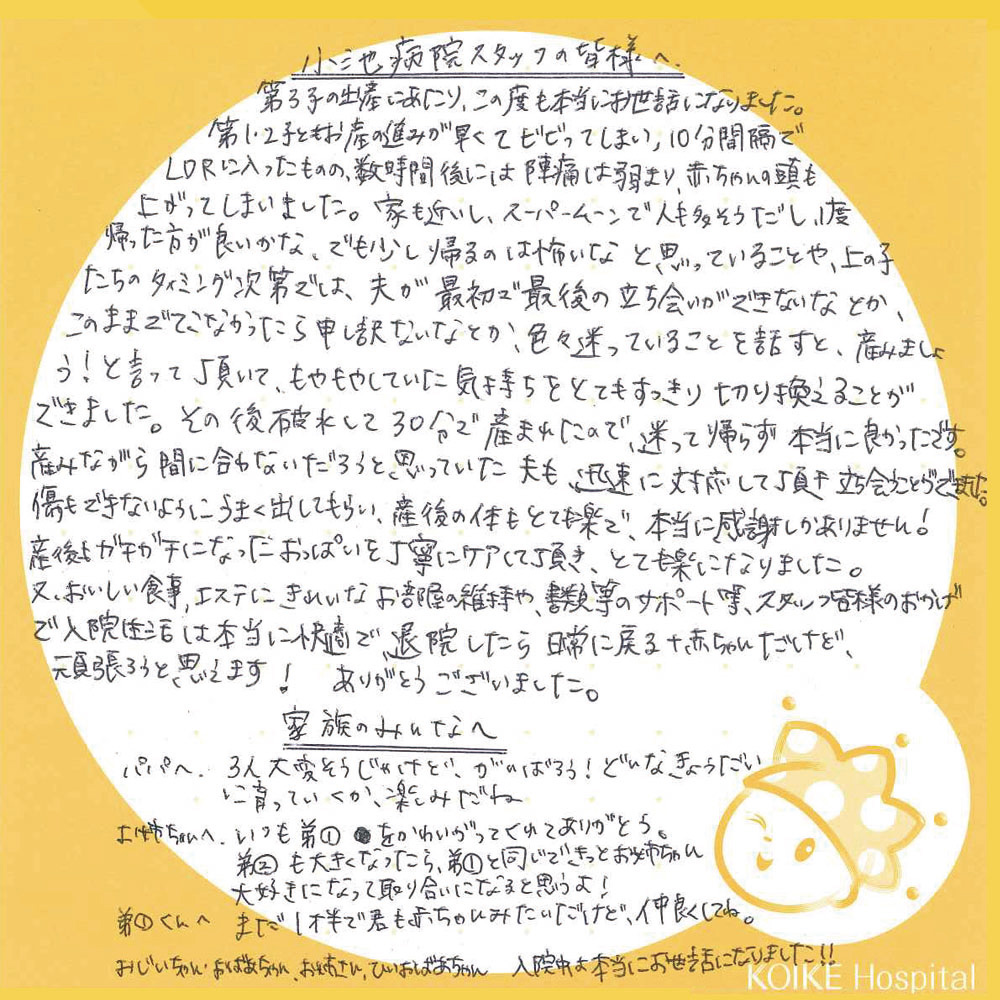 小池病院スタッフの皆様へ
第3子の出産にあたり、この度も本当にお世話になりました。
第1・2子ともお産の進みが早くてビビってしまい、10分間隔で
LDRに入ったものの、数時間後には陣痛は弱まり、赤ちゃんの頭も
上がってしまいました。家も近いし、スーパームーンで人も多そうだし、1度
帰った方が良いかな、でも少し帰るのは怖いな と思っていることや、上の子
たちのタイミング次第では、夫が最初で最後の立ち会いができないなとか、
このままでてこなかったら申し訳ないなとか、色々迷っていることを話すと、産みましょ
う!と言って頂いて、もやもやしていた気持ちをとてもすっきり切り換えることが
できました。その後破水して30分で産まれたので、迷って帰らず本当に良かったです。
産みながら間に合わないだろうと思っていた夫も、迅速に対応して頂き立ち会うことができました。
傷もできないようにうまく出してもらい、産後の体もとても楽で、本当に感謝しかありません!
産後もガチガチになったおっぱいを丁寧にケアして頂き、とても楽になりました。
又、おいしい食事、エステにきれいなお部屋の維持や、書類等のサポート等、スタッフ皆様のおかげ
で入院生活は本当に快適で、退院したら日常に戻る+赤ちゃんだけど、
頑張ろうと思えます! ありがとうございました。
家族のみんなへ
パパへ. 3人大変そうじゃけど、がんばろう!どんなきょうだい
に育っていくか、楽しみだね
お姉ちゃんへ. いつも弟①をかわいがってくれてありがとう。
弟②も大きくなったら、弟①と同じできっとお姉ちゃん
大好きになって取り合いになると思うよ!
弟①くんへ まだ1才半で君も赤ちゃんみたいだけど、仲良くしてね。
おじいちゃん・おばあちゃん、お姉さん、ひいおばあちゃん 入院中は本当にお世話になりました!!
KOIKE Hospital